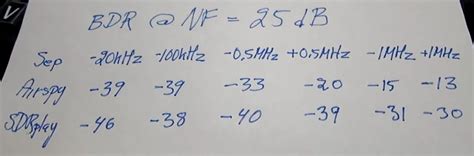 BDR @ NF = 25 dB
Sep -20kHz -100kHz -0,5MHz +0,5MHz -1MHz +1MHz
Airspy -39 -39 -33 -20 -15 -13
SDRplay -46 -38 -40 -39 -31 -30